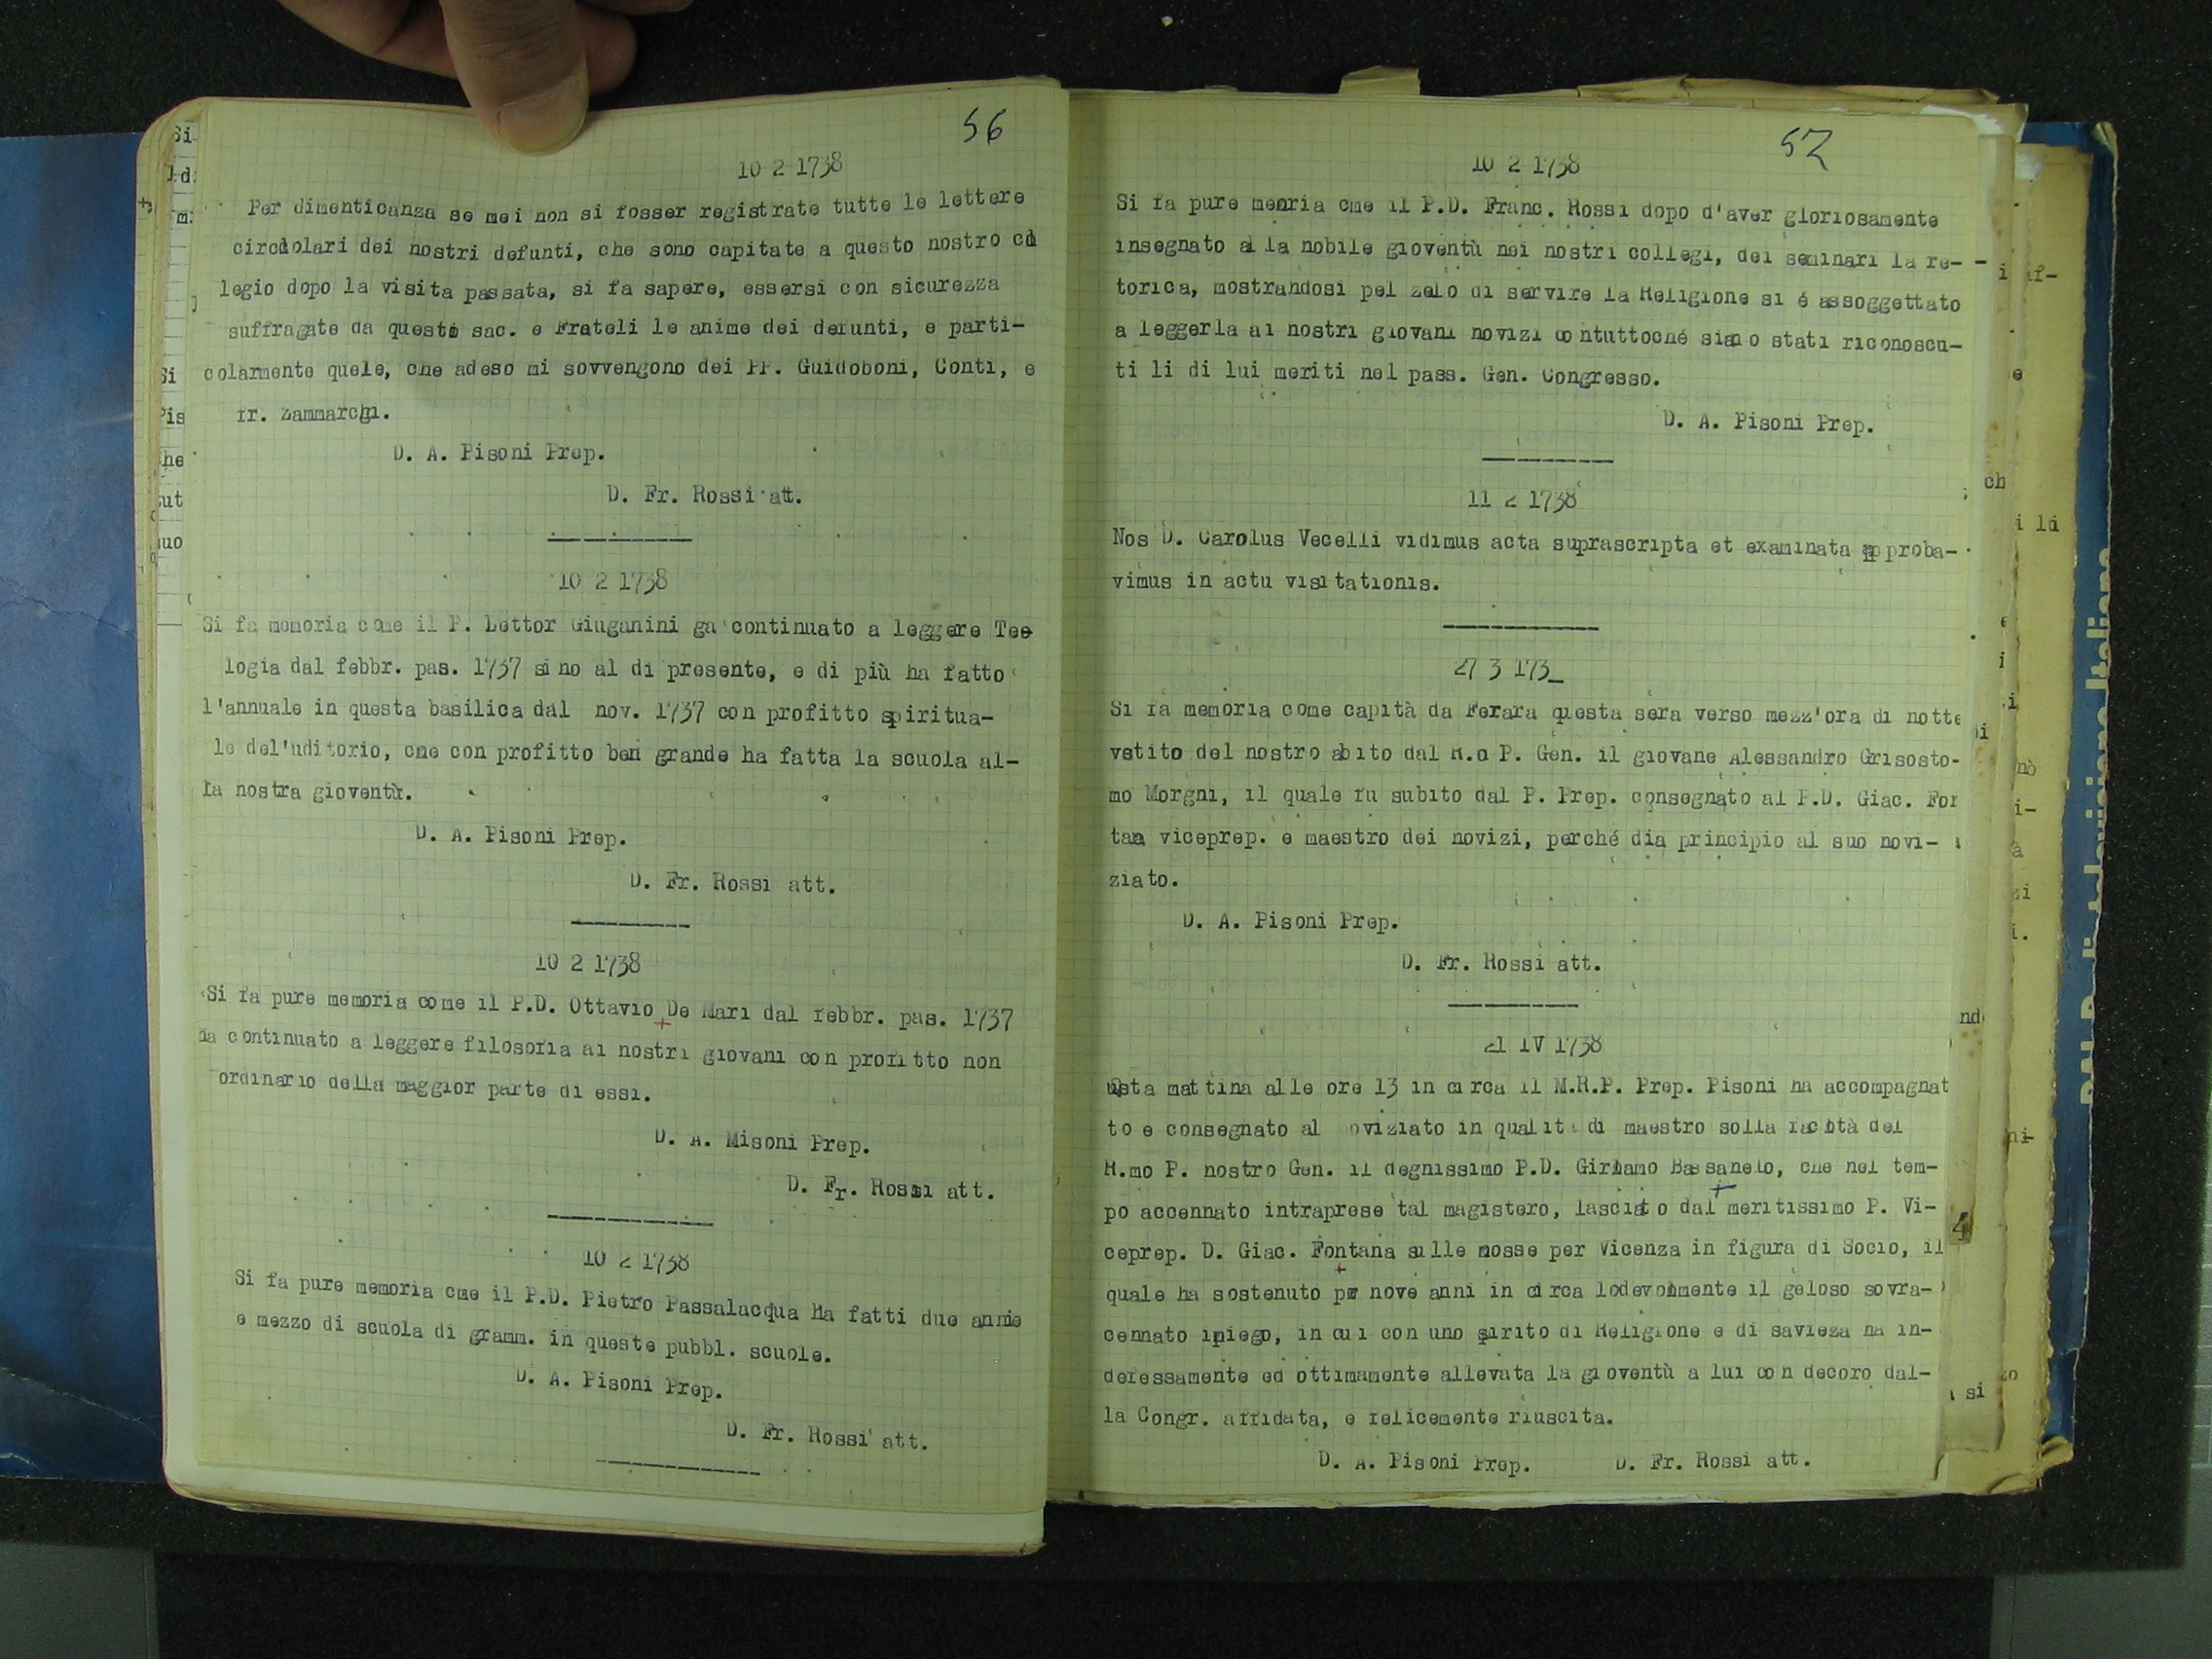 56
10 2 1738
Per dimenticanza se mei non si fosser registrate tutte le lettere
circolari dei nostri defunti, che sono capitate a questo nostro col
legio dopo la visita passata, si fa sapere, essersi con sicurezza
suffragate da questi sac. e Frateli le anime dei defunti, e parti-
colarmente quele, che adeso mi sovvengono dei PP. Guidoboni, Conti, e
Fr. Zammarchi.
D. A. Pisoni Prep.
D. Fr. Rossi att.
10 2 1738
Si fa memoria come il P. Lettor Giuganini ga continuato a leggere Teo
logia dal febbr. pas. 1737 sino al di presente, e di più ha fatto
l'annuale in questa basilica dal nov. 1737 con profitto spiritua-
le del'uditorio, che con profitto ben grande ha fatta la scuola al-
la nostra gioventù.
D. A. Pisoni Prep.
D. Fr. Rossi att.
10 2 1738
Si fa pure memoria come il P.D. Ottavio De Mari dal febbr. pas. 1737
ha continuato a leggere filosofia ai nostri giovani con profitto non
ordinario della maggior parte di essi.
D. A. Misoni Prep.
D. Fr. Rossi att.
10 2 1738
Si fa pure memoria cme il P.D. Pietro Passalacqua Ha fatti due annie
e mezzo di scuola di gramm. in queste pubbl. scuole.
D. A. Pisoni Prep.
D. Fr. Rossi att.
57
10 2 1738
Si fa pure menria cme il P.D. Franc. Rossi dopo d'aver gloriosamente
insegnato alla nobile gioventù nei nostri collegi, dei seminari la re-
torica, mostrandosi pel zelo di servire la Religione si é assoggettato
a leggerla ai nostri giovani novizi contuttoché siano stati riconoscu-
ti li di lui meriti nel pass. Gen. Congresso.
D. A. Pisoni Prep.
11 2 1738
Nos D. Carolus Vecelli vidimus acta suprascripta et examinata approba-
vimus in actu visitationis.
27 3 173_
Si fa memoria come capità da Ferara questa sera verso mezz'ora di notte
vstito del nostro abito dal R.o P. Gen. il giovane Alessandro Grisosto-
mo Morgni, il quale fu subito dal P. Prep. consegnato al P.D. Giac. Fon
tana viceprep. e maestro dei novizi, perché dia principio al suo novi-
ziato.
D. A. Pisoni Prep.
D. Fr. Rossi att.
21 IV 1738
Questa mattina alle ore 13 in circa il M.R.P. Prep. Pisoni ha accompagnat
to e consegnato al oviziato in qualit di maestro solla facoltà del
R.mo P. nostro Gen. il degnissimo P.D. Girlamo Bassanelo, che nel tem-
po accennato intraprese tal magistero, lasciato dal meritissimo P. Vi-
ceprep. D. Giac. Fontana sulle mosse per Vicenza in figura di Socio, il
quale ha sostenuto per nove anni in circa lodevolmente il geloso sovra-
cennato ipiego, in cui con uno spirito di Religione e di savieza ha in-
defessamente ed ottimamente allevata la gioventù a lui con decoro dal-
la Congr. affidata, e felicemente riuscita.
D. A. Pisoni Prep. D. Fr. Rossi att.